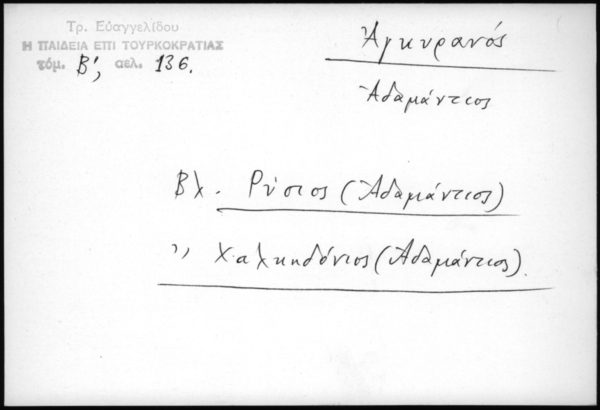 Τρ. Εὐαγγελίδου
Η ΠΑΙΔΕΙΑ ΕΠΙ ΤΟΥΡΚΟΚΡΑΤΙΑΣ
τόμ. Β', σελ. 136.
Ἀγκυρανός
Ἀδαμάντιος
Βλ. Ρύσιος (Ἀδαμάντιος)
" Χαλκηδόνιος (Ἀδαμάντιος).